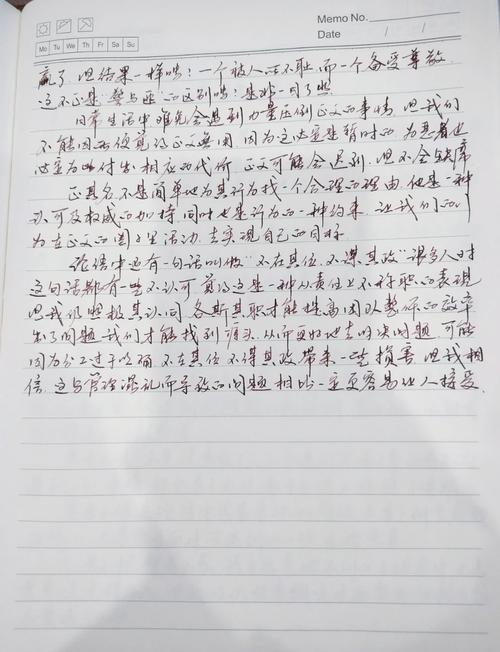 Memo No.
Mo Tu We Th Fr Sa Su
Date / /
赢了 但结果一样吗？一个被人所不耻 而一个备受尊敬
这不正是 与 的区别吗？是非一目了然
日常生活中难免会遇到力量压倒正义的事情 但我们
不能因而便觉得正义无用 因为这一定是暂时的 为恶者也
一定为此付出相应的代价 正义可能会迟到 但不会缺席
正其名 不是简单地为其行为找一个合理的理由 他是一种
认可及权威的加持 同时也是行为的一种约束 让我们的行
为在正义的圈子里活动 去实现自己的目标
论语中还有一句话叫做“不在其位 不谋其政” 很多人对
这句话都有一些不认可 觉得这是一种从责任上不称职的表现
但我仍很极其认同 各斯其职才能提高团队整体的效率
出了问题 我们才能找到源头 从而更好地去解决问题 可能
因为分工过于明确 不在其位 不谋其政 带来一些损害 但我相
信 这与管理混乱而导致的问题 相比一定更容易让人接受